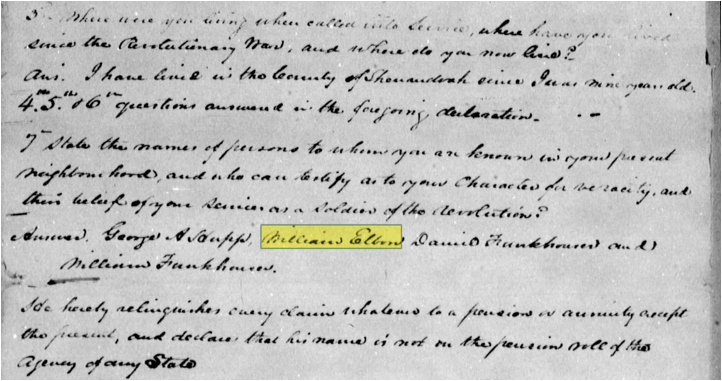 3d Where were you living when called into service, where have you lived
since the Revolutionary War, and where do you now live?
Ans. I have lived in the County of Shenandoah since I was nine years old.
4th 5th & 6th questions answered in the foregoing declaration.
7th State the names of persons to whom you are known in your present
neighbourhood, and who can testify as to your Character for veracity, and
their belief of your services as a soldier of the Revolution?
Answer. George A Hupp, William Elbon, Daniel Funkhouser and
William Funkhouser.
He hereby relinquishes every claim whatever to a pension or annuity except
the present, and declares that his name is not on the pension roll of the
Agency of any State